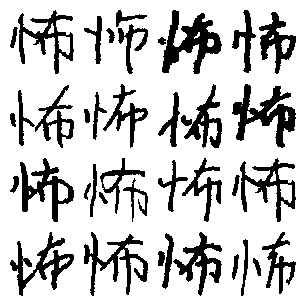 怖怖怖怖
怖怖怖怖
怖怖怖怖
怖怖怖怖